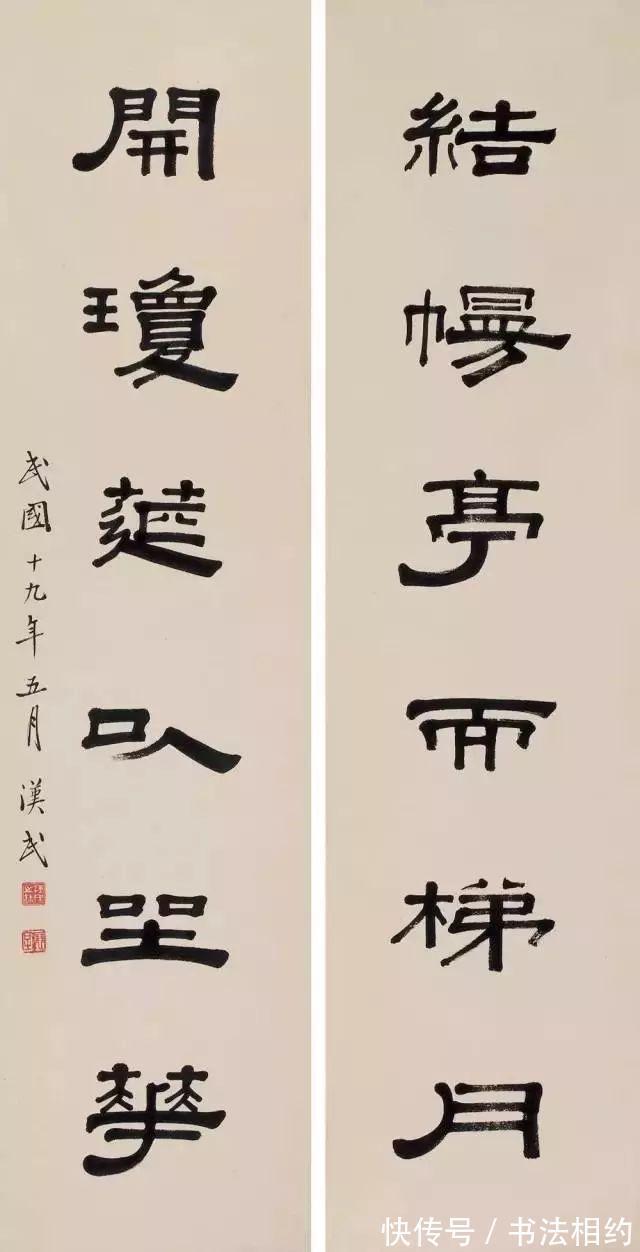 結幔亭而梯月
開瓊筵以坐華
民國十九年五月漢民
快传号 / 书法相约